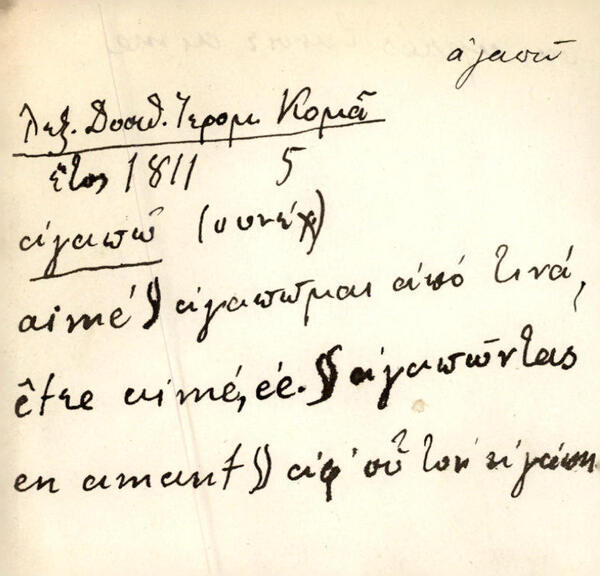 ἀγαπῶ
Λεξ. Δοσιθ. Ἱερομ. Κομᾶ
ἔτος 1811 5
ἀγαπῶ (συνέχ)
aimé) ἀγαπῶμαι ἀπό τινά,
être aimé, ée.) ἀγαπῶντας
en amant) ἀφ' οὗ τόν ἠγάπη